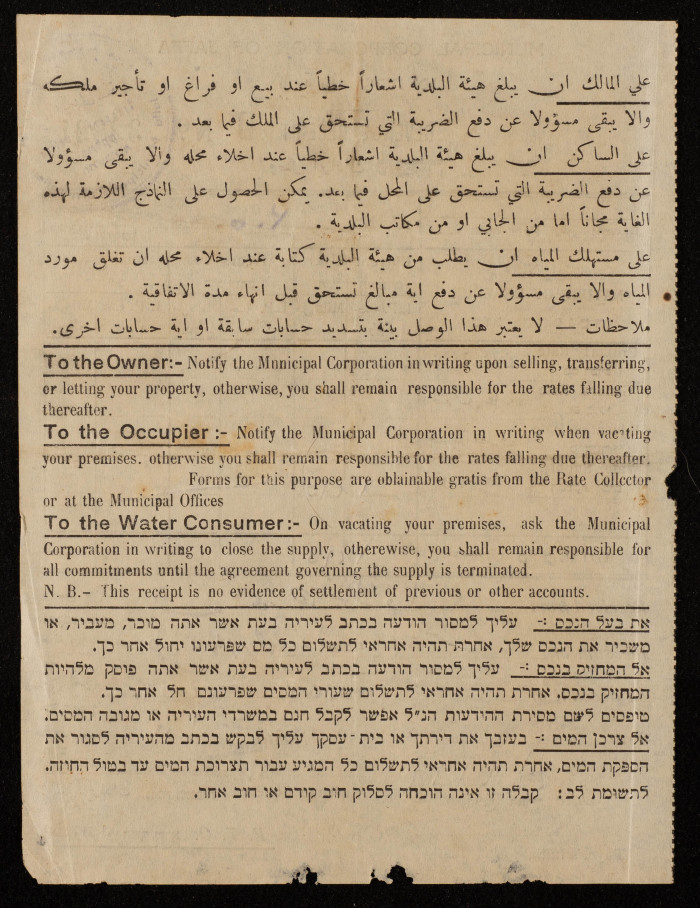 على المالك ان يبلغ هيئة البلدية اشعاراً خطياً عند بيع او فراغ او تأجير ملكه
والا يبقى مسؤولا عن دفع الضريبة التي تستحق على الملك فيما بعد .
على الساكن ان يبلغ هيئة البلدية اشعاراً خطياً عند اخلاء محله والا يبقى مسؤولا
عن دفع الضريبة التي تستحق على المحل فيما بعد. يمكن الحصول على النماذج اللازمة لهذه
الغاية مجاناً اما من الجابي او من مكاتب البلدية .
على مستهلك المياه ان يطلب من هيئة البلدية كتابة عند اخلاء محله ان تغلق مورد
المياه والا يبقى مسؤولا عن دفع اية مبالغ تستحق قبل انهاء مدة الاتفاقية .
ملاحظات — لا يعتبر هذا الوصل بينة بتسديد حسابات سابقة او اية حسابات اخرى.
To the Owner:- Notify the Municipal Corporation in writing upon selling, transferring,
or letting your property, otherwise, you shall remain responsible for the rates falling due
thereafter.
To the Occupier :- Notify the Municipal Corporation in writing when vacating
your premises. otherwise you shall remain responsible for the rates falling due thereafter.
Forms for this purpose are oblainable gratis from the Rate Collector
or at the Municipal Offices
To the Water Consumer:- On vacating your premises, ask the Municipal
Corporation in writing to close the supply, otherewise, you shall remain responsible for
all commitments until the agreement governing the supply is terminated.
N. B.- This receipt is no evidence of settlement of previous or other accounts.
את בעל הנכס :- עליך למסור הודעה בכתב לעיריה בעת אשר אתה מוכר, מעביר, או
משכיר את הנכס שלך, אחרת תהיה אחראי לתשלום כל מס שפרעונו יחול אחר כך.
אל המחזיק בנכס :- עליך למסור הודעה בכתב לעיריה בעת אשר אתה פוסק מלהיות
המחזיק בנכס. אחרת תהיה אחראי לתשלום שעורי המסים שפרעונם חל אחר כך.
טופסים לשם מסירת ההידעות הנ"ל אפשר לקבל חנם במשרדי העיריה או מגובה המסים.
אל צרכן המים :- בעזבך את דירתך או בית-עסקך עליך לבקש בכתב מהעיריה לסגור את
הספקת המים, אחרת תהיה אחראי לתשלום כל המגיע עבור תצרוכת המים עד בטול החוזה.
לתשומת לב: קבלה זו אינה הוכחה לסלוק חוב קודם או חוב אחר.